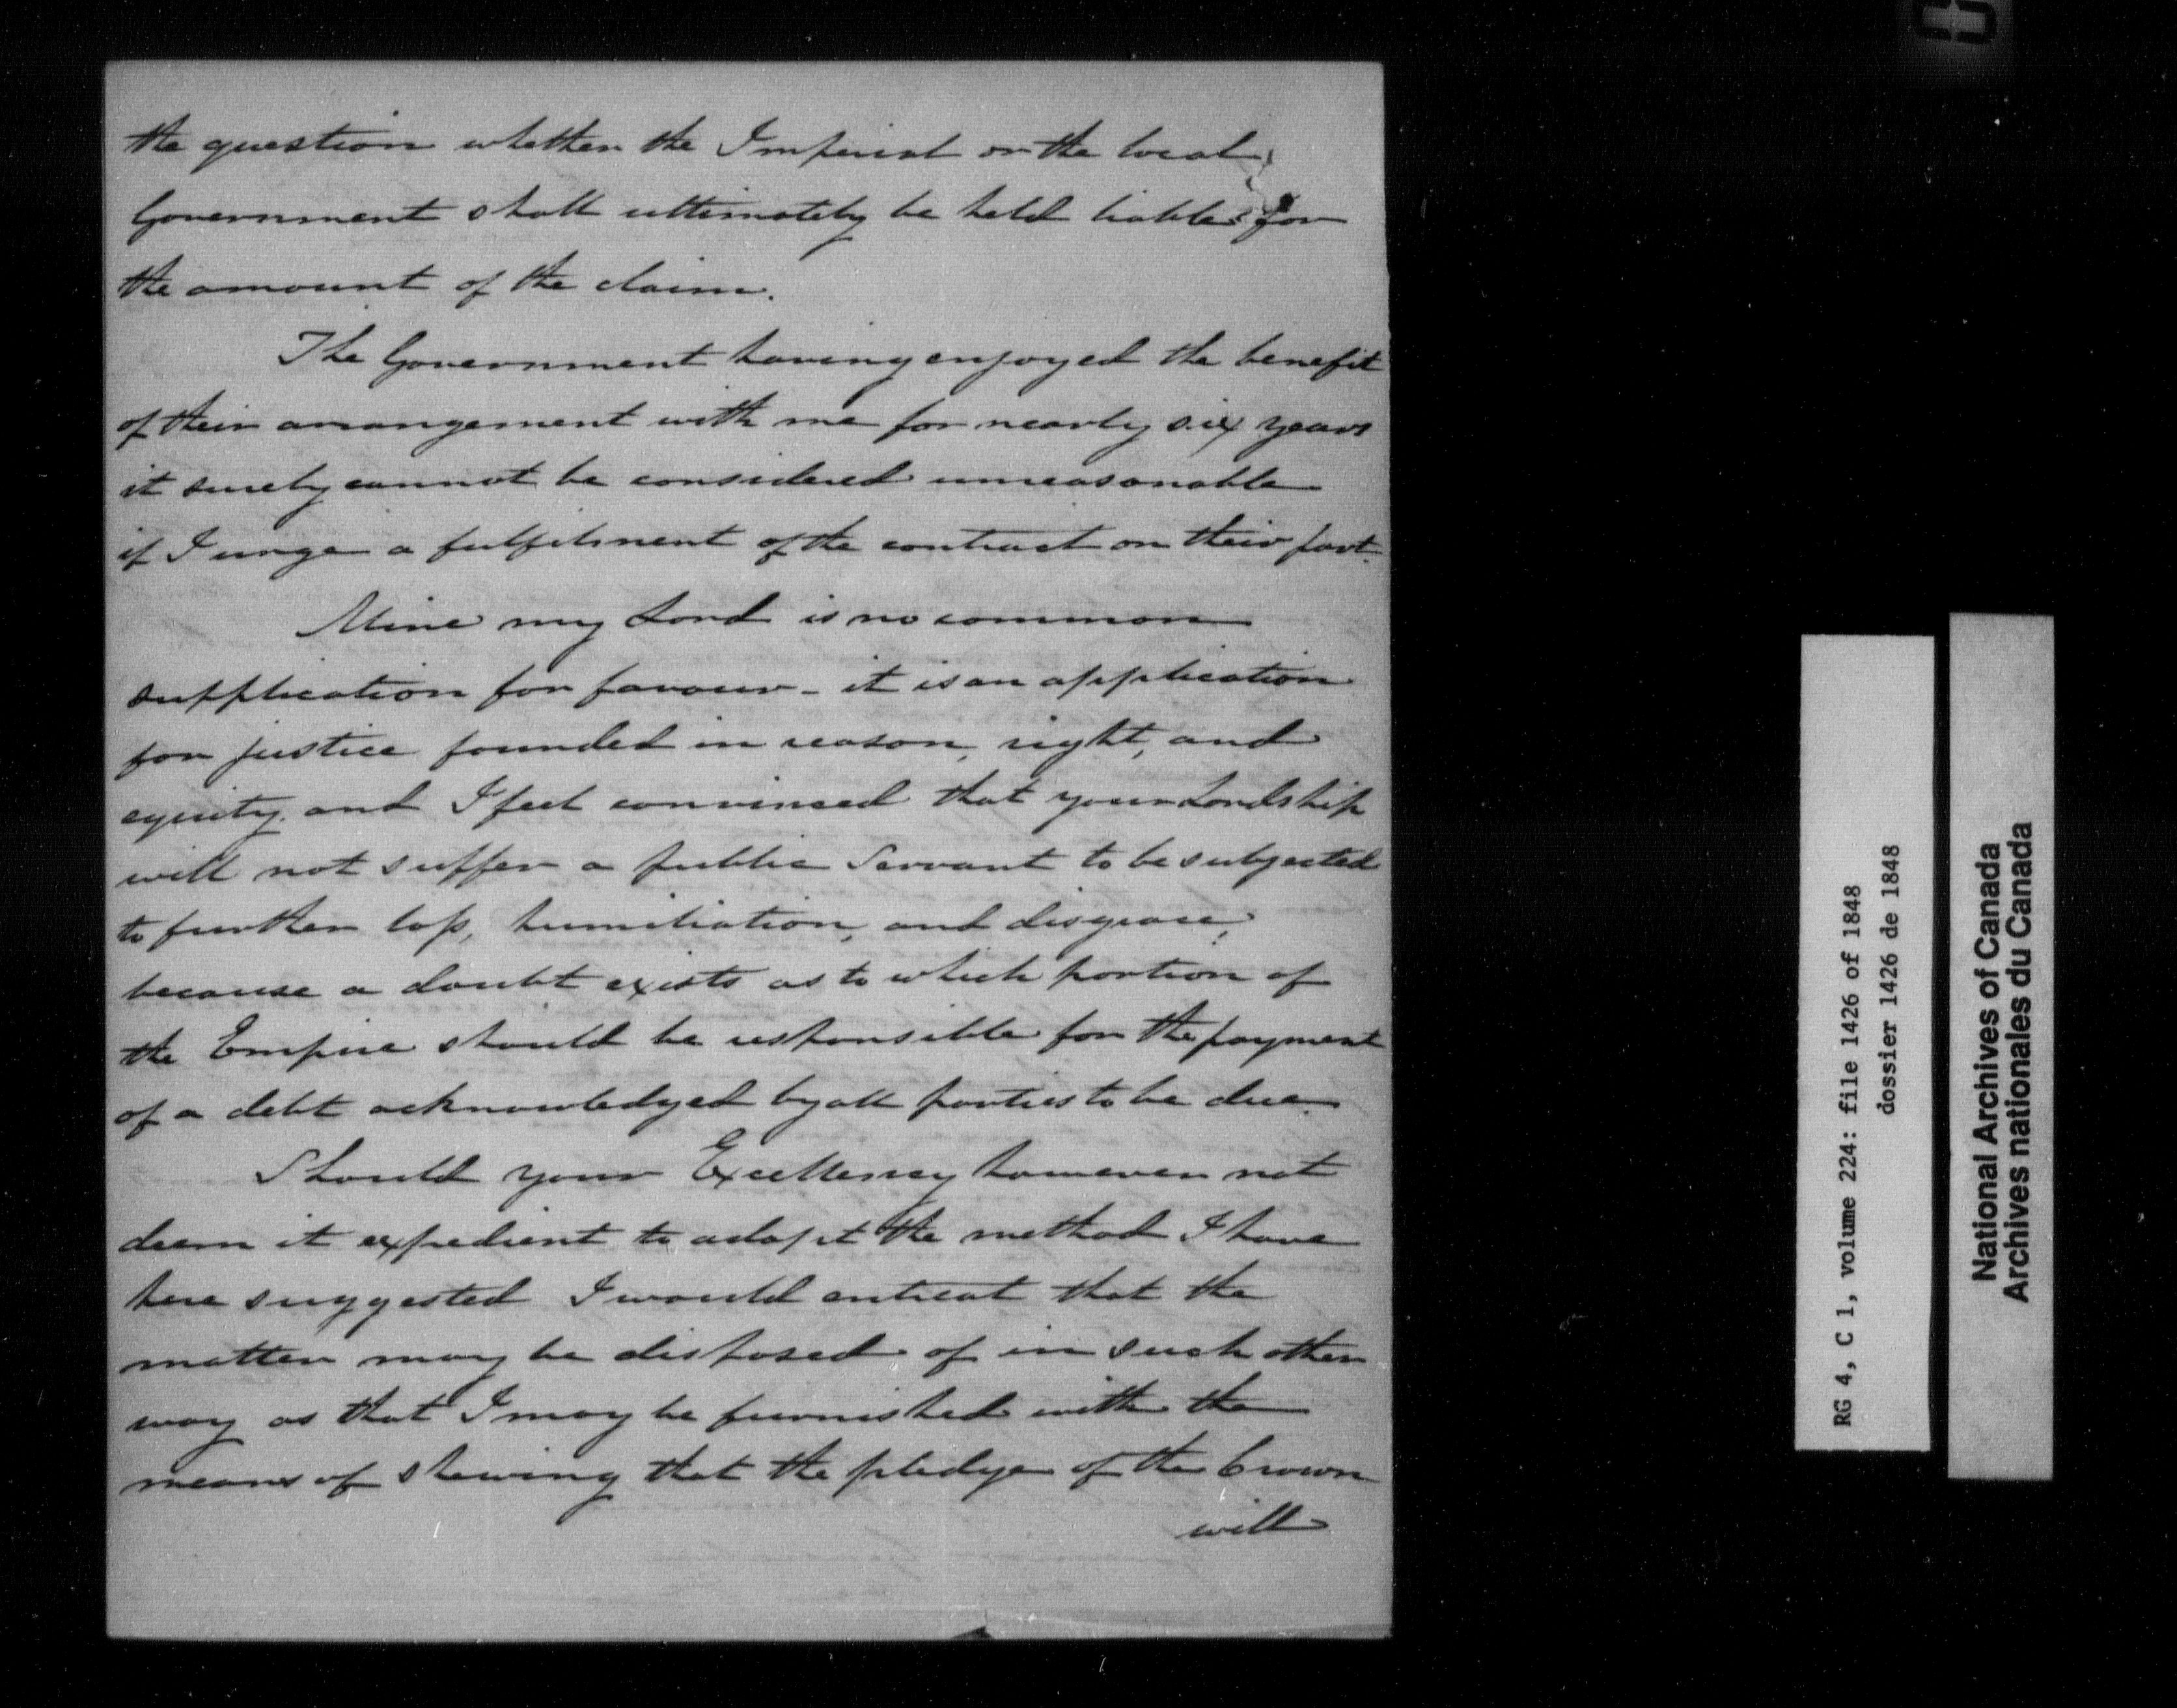 the question whether the Imperial or the local
Government shall ultimately be held liable for
the amount of the claim.
The Government having enjoyed the benefit
of their arrangement with me for nearly six years
it surely cannot be considered unreasonable
if I urge a fulfilment of the contract on their part.
Mine my Lord is no common
supplication for favour - it is an application
for justice founded in reason, right, and
equity, and I feel convinced that your Lordship
will not suffer a public Servant to be subjected
to further loss, humiliation, and disgrace,
because a doubt exists as to which portion of
the Empire should be responsible for the payment
of a debt acknowledged by all parties to be due.
Should your Excellency however not
deem it expedient to adopt the method I have
here suggested I would entreat that the
matter may be disposed of in such other
way as that I may be furnished with the
means of shewing that the pledge of the Crown
will
RG 4, C 1, volume 224: file 1426 of 1848
dossier 1426 de 1848
National Archives of Canada
Archives nationales du Canada